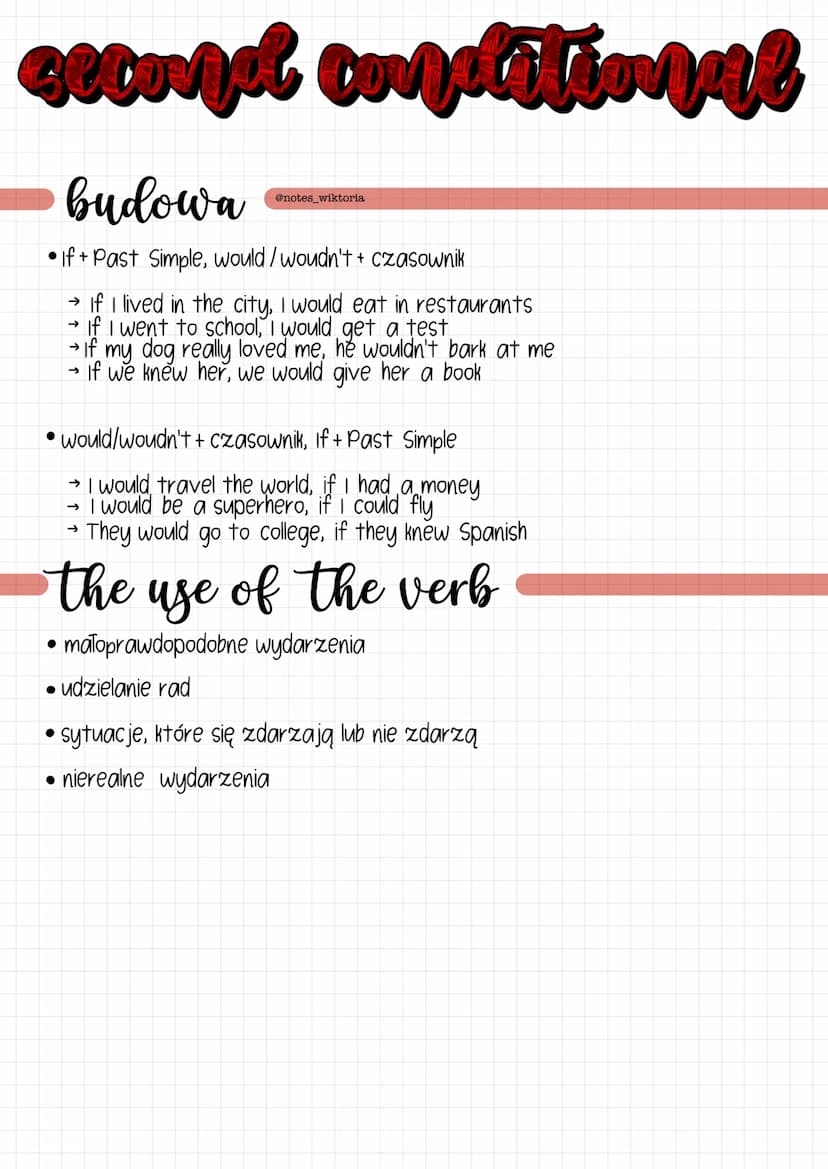 second conditional
budowa
@notes_wiktoria
• If + Past Simple, would / woudn't + czasownik
→ If I lived in the city, I would eat in restaurants
→ If I went to school, I would get a test
→ If my dog really loved me, he wouldn't bark at me
→ If we knew her, we would give her a book
• would/woudn't + czasownik, If + Past Simple
→ I would travel the world, if I had a money
→ I would be a superhero, if I could fly
→ They would go to college, if they knew Spanish
the use of the verb
• małoprawdopodobne wydarzenia
• udzielanie rad
• sytuacje, które się zdarzają lub nie zdarzą
• nierealne wydarzenia